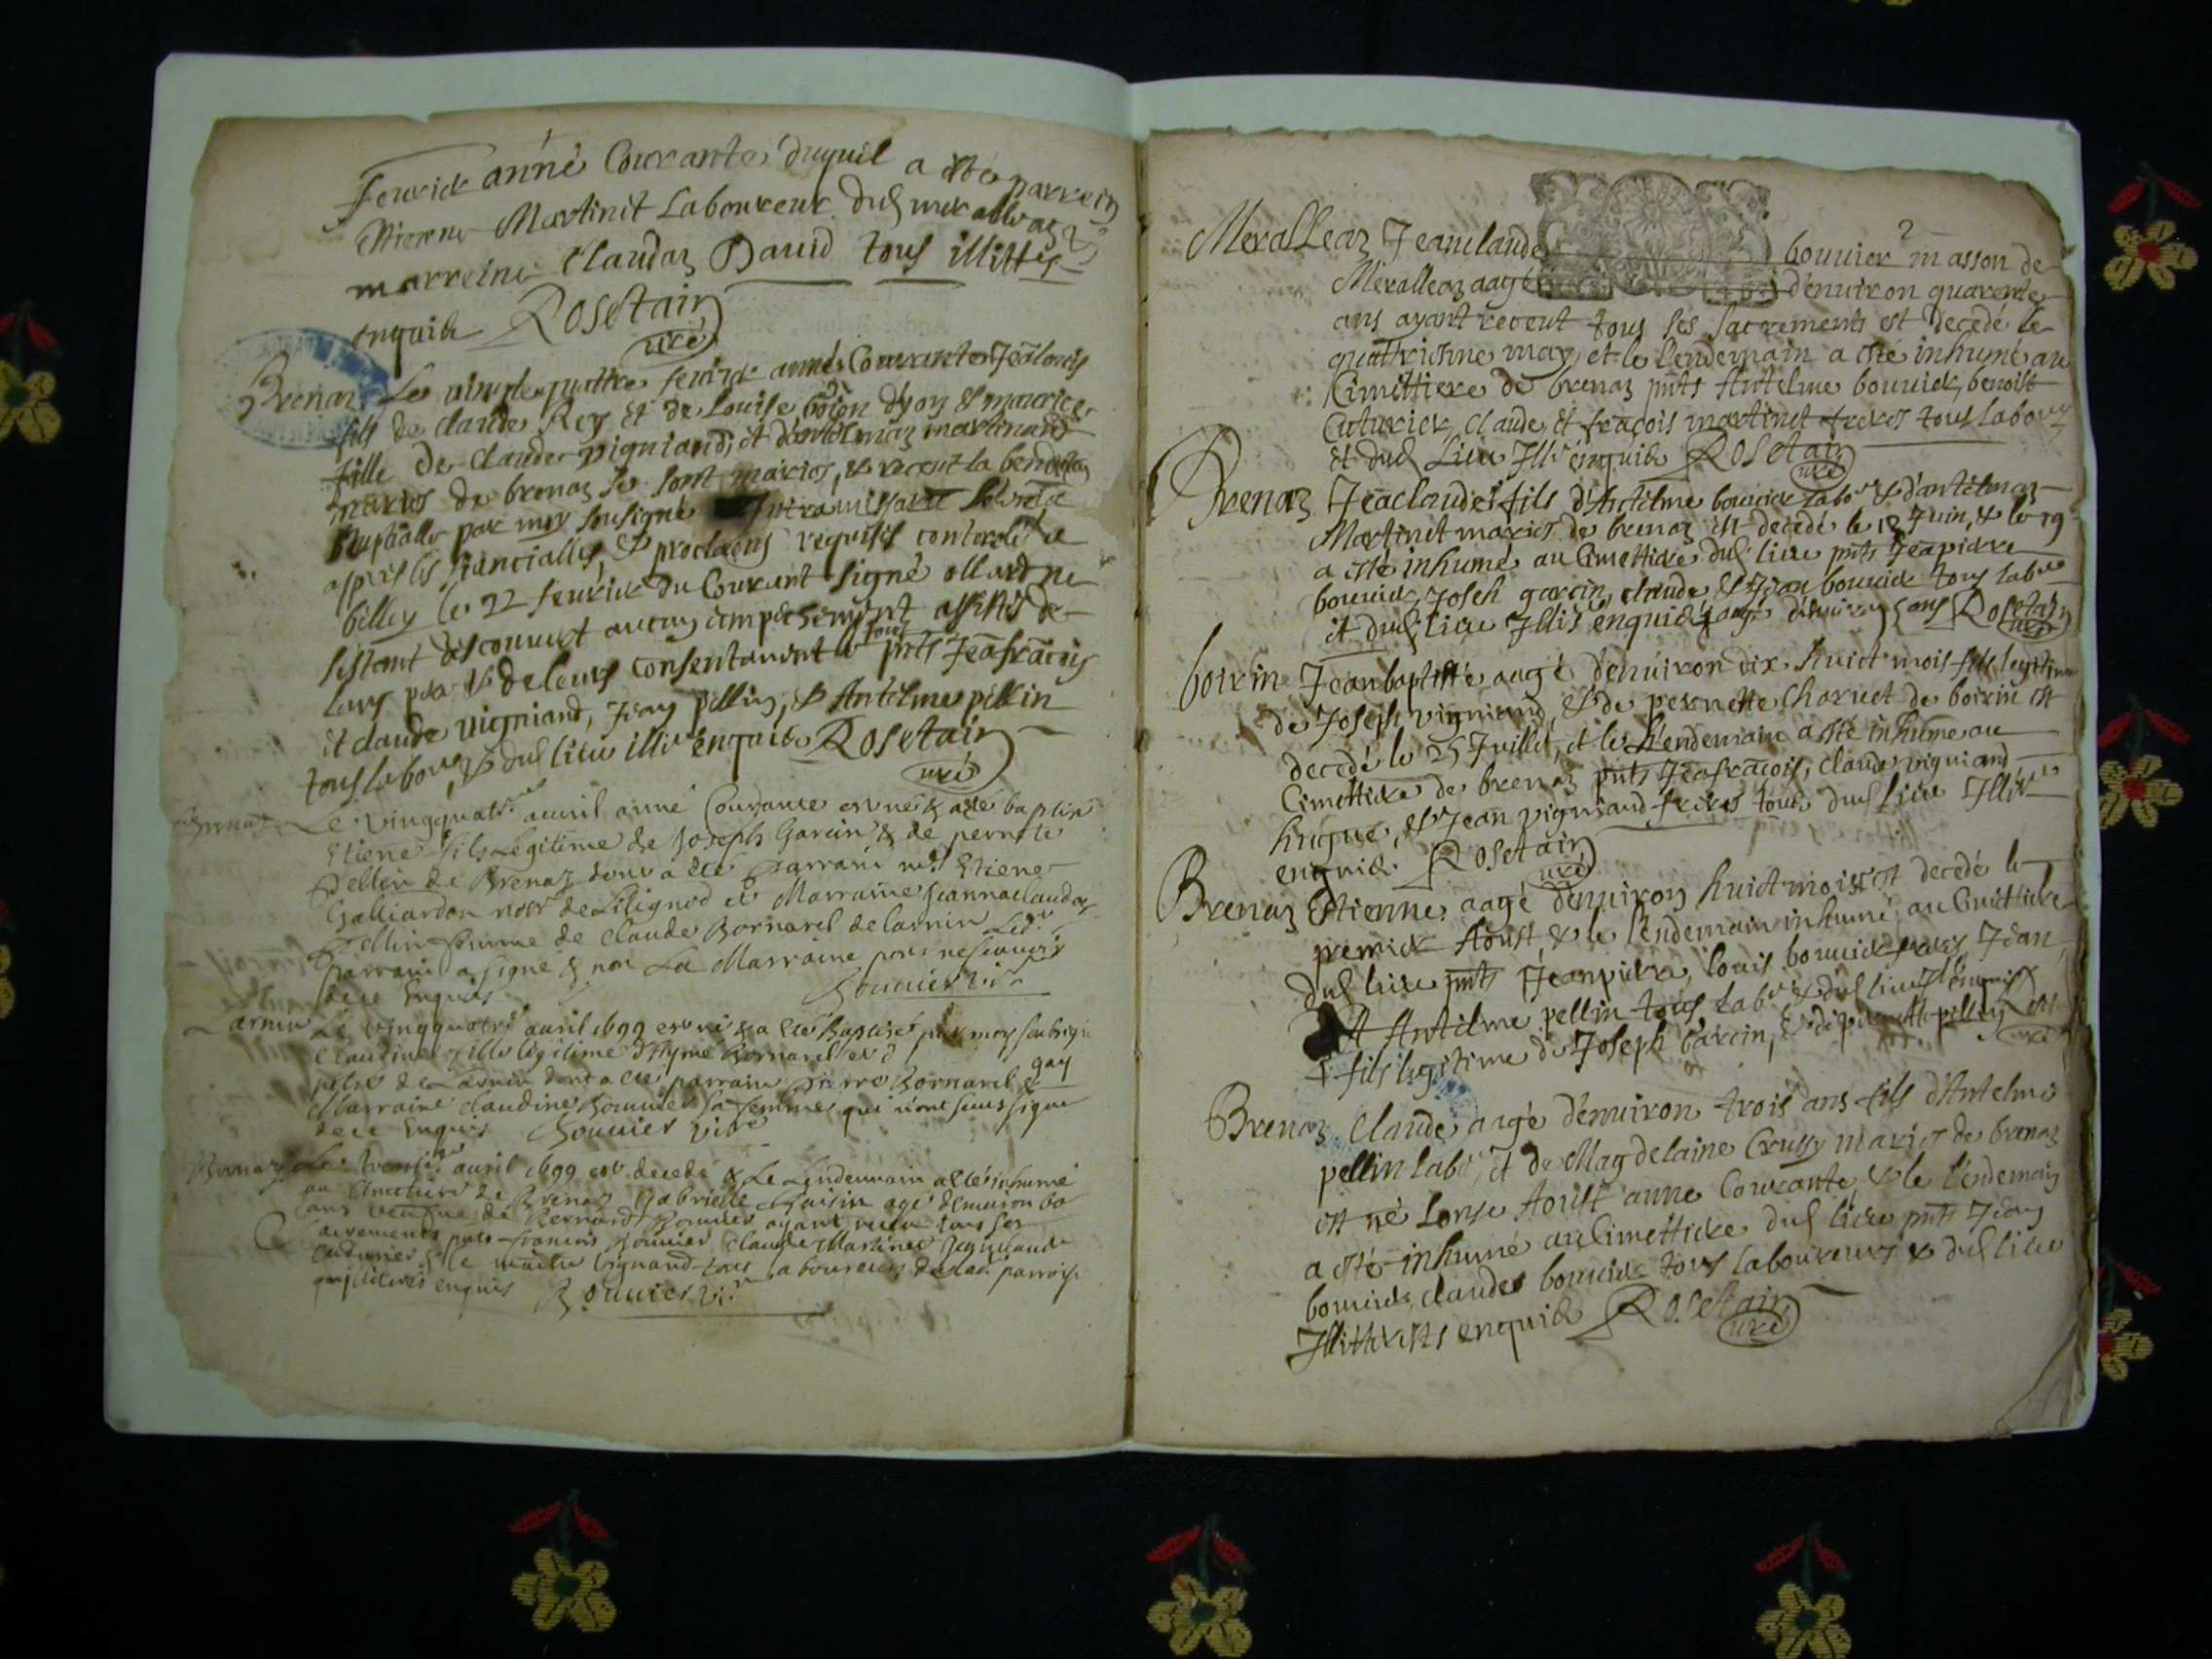 feurier année Courante duquel a esté parrein
Estienne Martinet Laboureur dud meralleaz &
marreine Claudaz David tous illittés
enquis Rosetain
curé
Brenaz Le vingt quattre feurier année Courante Jean louis
fils de claude Rey et de Louise d'yon & maurice
fille de Claude vigniand, et d'antelmaz martinand
mariés de brenaz se sont mariés, & receut la benediction
Nuptialle par moy sousigné
appres les fiancialles, & proclaons requises controlé a
billey le 22 feurier du Courant signé ollard ne
sestant descouuert aucun empeschement assistés de
leurs peres & de leurs consentement tous pnts Jeafracois
et claude vigniand, Jean pellin, & Antelme pellin
tous labours & dud lieu illi enquis Rosetain
curé
Brenaz Le vingquatre auril anné Courante est né & a été baptisé
Etiene fils Legitime de Joseph Garcin & de pernete
Pellin de Brenaz dont a été parrain mr Etiene
Galliardon nore de Lilignod et Marraine Jeanneclaudaz
Pellin femme de Claude Bornarel de Larnin Led
parrain a signé & non La Marraine pour ne scauoir
de ce Enquis Bouuier vire
Larnin Le vingquatre auril 1699 est né & a été Baptisé par moy soubsigné
Claudine fille legitime d'Ayme Bornarel et d
gay
de Larnin dont a été parrain Pierre Bornarel &
Marraine Claudine Bouuier sa femme qui n'ont sceu signer
de ce Enquis Bouuier vire
Brenaz Le auril 1699 est decedé & Le Lendemain a été inhumé
au Cimetiere de Brenaz Gabrielle agé denuiron 60
ans veufue de Bernard Bouuier ayant receu tous ses
sacrements pnts francois Bouuier Claude Martinet Jeanclaude
cuturier & Claude vignand tous laboureurs de lad parroisse
illiterés enquis Bouuier vire
2
Meralleaz Jeanclaude bouuier masson de
Meralleaz aagé d'enuiron quarente
ans ayant receut tous ses sacrements est decedé le
quattriesme may, et le lendemain a esté inhumé au
Cimettiere de brenaz pnts Antelme bouuier, benoist
Cuturier, Claude et fracois martinet freres tous labours
et dud Lieu Illi enquis Rosetain
curé
Brenaz Jeaclaude fils d'Antelme bouuier labor & d'antelmaz
Martinet mariés de brenaz est decedé le 18 Juin, & le 19
a esté inhumé au Cimettiere dud lieu pnts Jeapierre
bouuier, Joseh garcin, claude & Jean bouuier tous labrs
et dud lieu Illis enquis aagé d'enuiron ans Rosetain
curé
boirin Jeanbaptiste aagé d'enuiron dix huict mois fils legitime
de Joseph vigniand, & de pernette Charuet de boirin est
decedé le 25 Juillet, et le lendemain a esté inhumé au
Cimettiere de brenaz pnts Jeafracois, claude vigniand
hugue, & Jean vigniand freres tous dud lieu Illi
enquis Rosetain
curé
Brenaz Estienne aagé d'enuiron huict mois est decedé le
premier Aoust & le lendemain inhumé au Cimettiere
dud lieu pnts Jeanpierre, louis bouuier freres Jean
et Antelme pellin tous labrs & dud lieu
+ fils legitime de Joseph Garcin, & de pernette pellin
curé
Brenaz Claude aagé d'enuiron trois ans fils d'Antelme
pellin labor et de Magdelaine Crussy mariés de brenaz
est né Lonze Aoust anne Courante & le lendemain
a esté inhumé au Cimettiere dud lieu pnts Jean
bouuier, claude bouuier tous laboureurs & dud lieu
Illitterés enquis Rosetain
curé